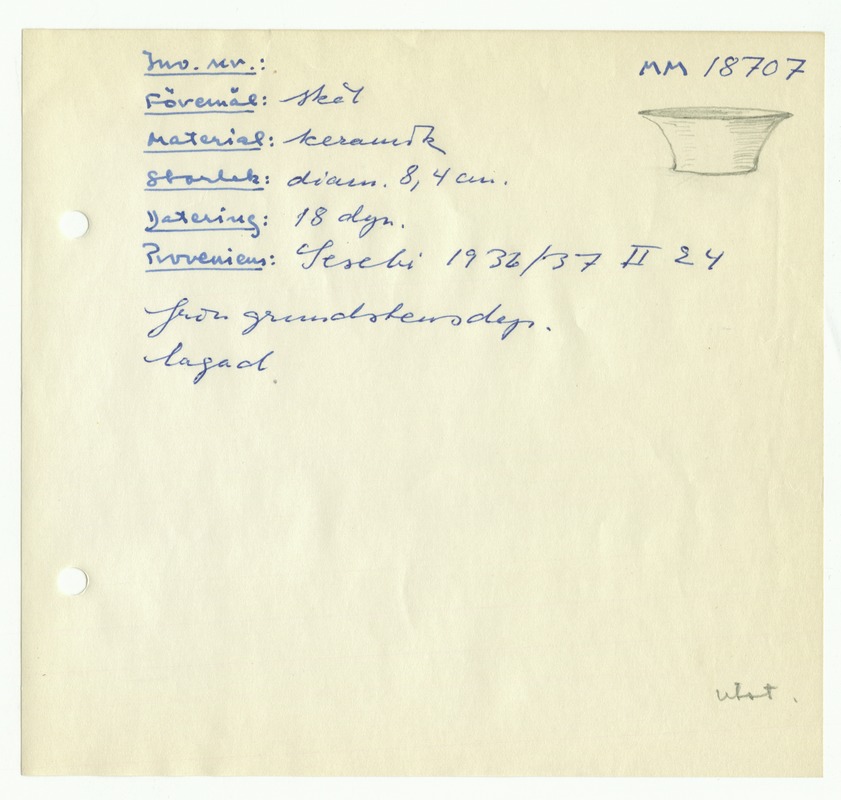 Inv. nr.: MM 18707
Föremål: skål
Material: keramik
Storlek: diam. 8,4 cm.
Datering: 18 dyn.
Proveniens: Sesebi 1936/37 II 24
från grundstensdep.
lagad
utst.